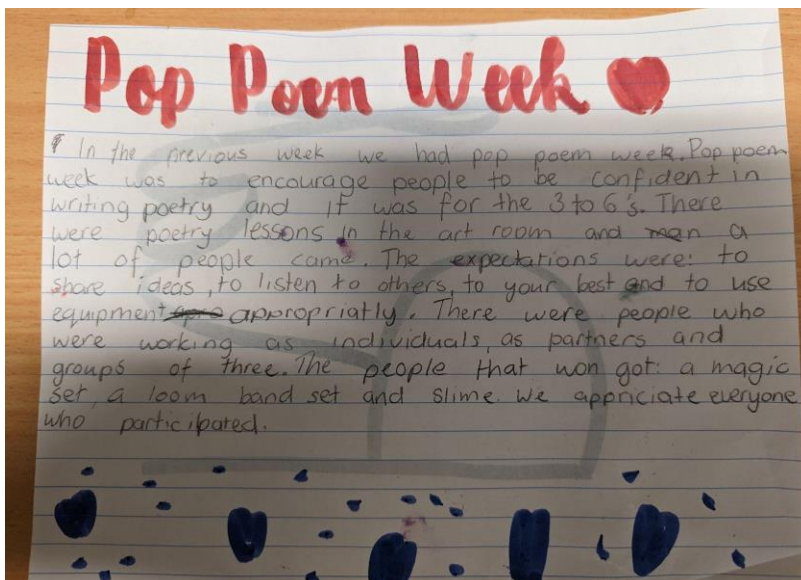 Pop Poem Week
In the previous week we had pop poem week. Pop poem
week was to encourage people to be confident in
writing poetry and it was for the 3 to 6's. There
were poetry lessons in the art room and a
lot of people came. The expectations were: to
share ideas, to listen to others, to your best and to use
equipment appropriatly. There were people who
were working as individuals, as partners and
groups of three. The people that won got: a magic
set, a loom band set and slime. We appriciate everyone
who participated.